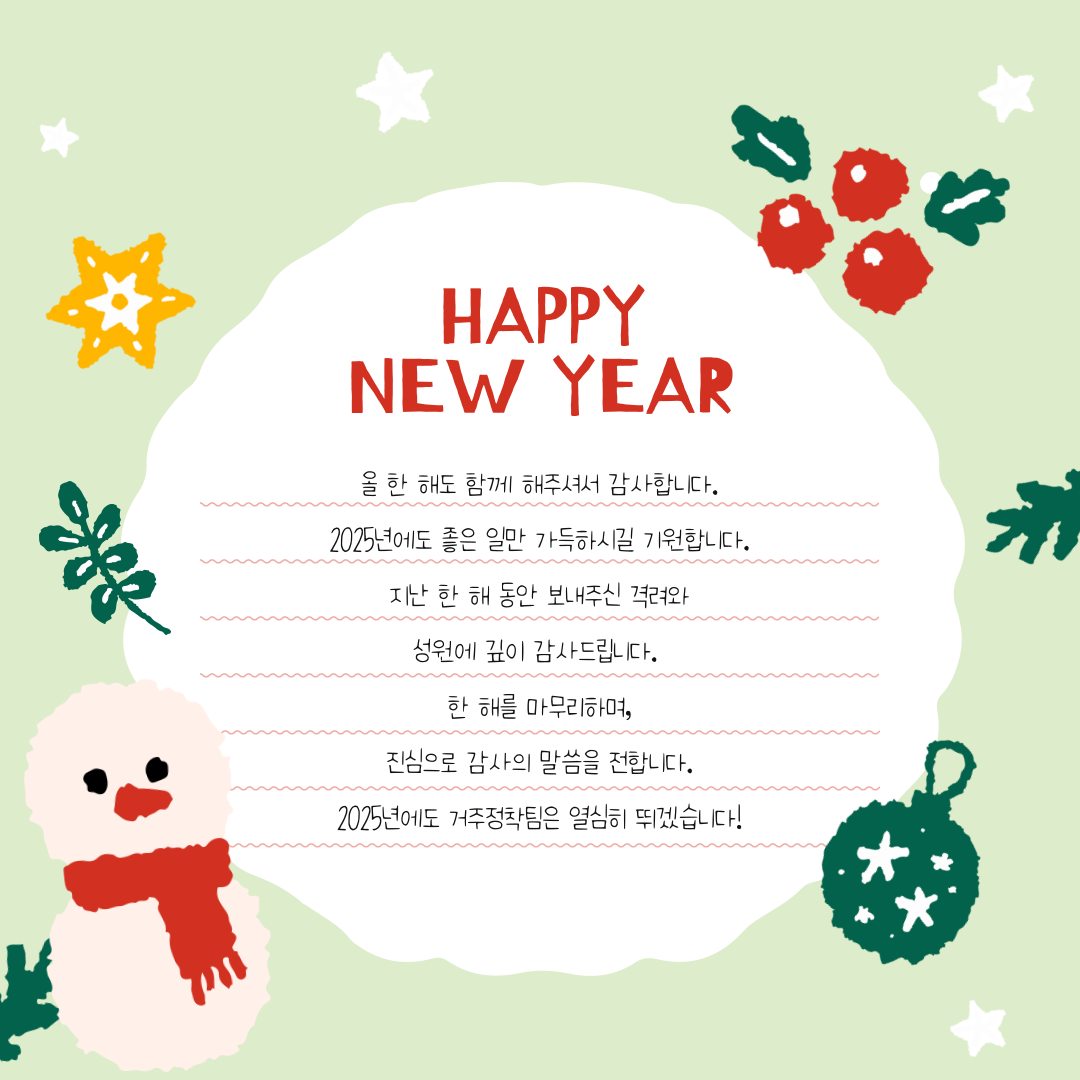 HAPPY
NEW YEAR
올 한 해도 함께 해주셔서 감사합니다.
2025년에도 좋은 일만 가득하시길 기원합니다.
지난 한 해 동안 보내주신 격려와
성원에 깊이 감사드립니다.
한 해를 마무리하며,
진심으로 감사의 말씀을 전합니다.
2025년에도 거주정착팀은 열심히 뛰겠습니다!